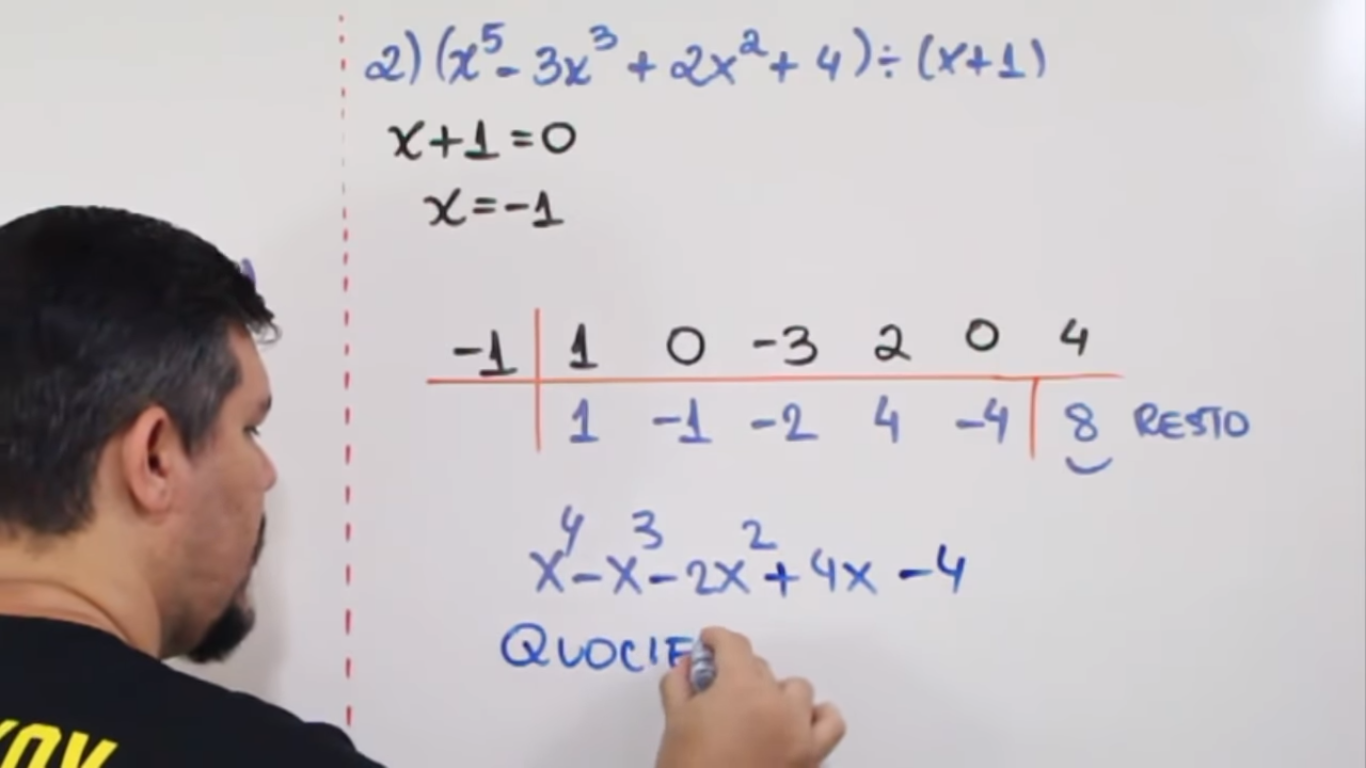 2) (x⁵ - 3x³ + 2x² + 4) ÷ (x+1)
x+1=0
x=-1
-1 | 1 0 -3 2 0 4
1 -1 -2 4 -4 | 8 RESTO
x⁴ - x³ - 2x² + 4x - 4
QUOCIE